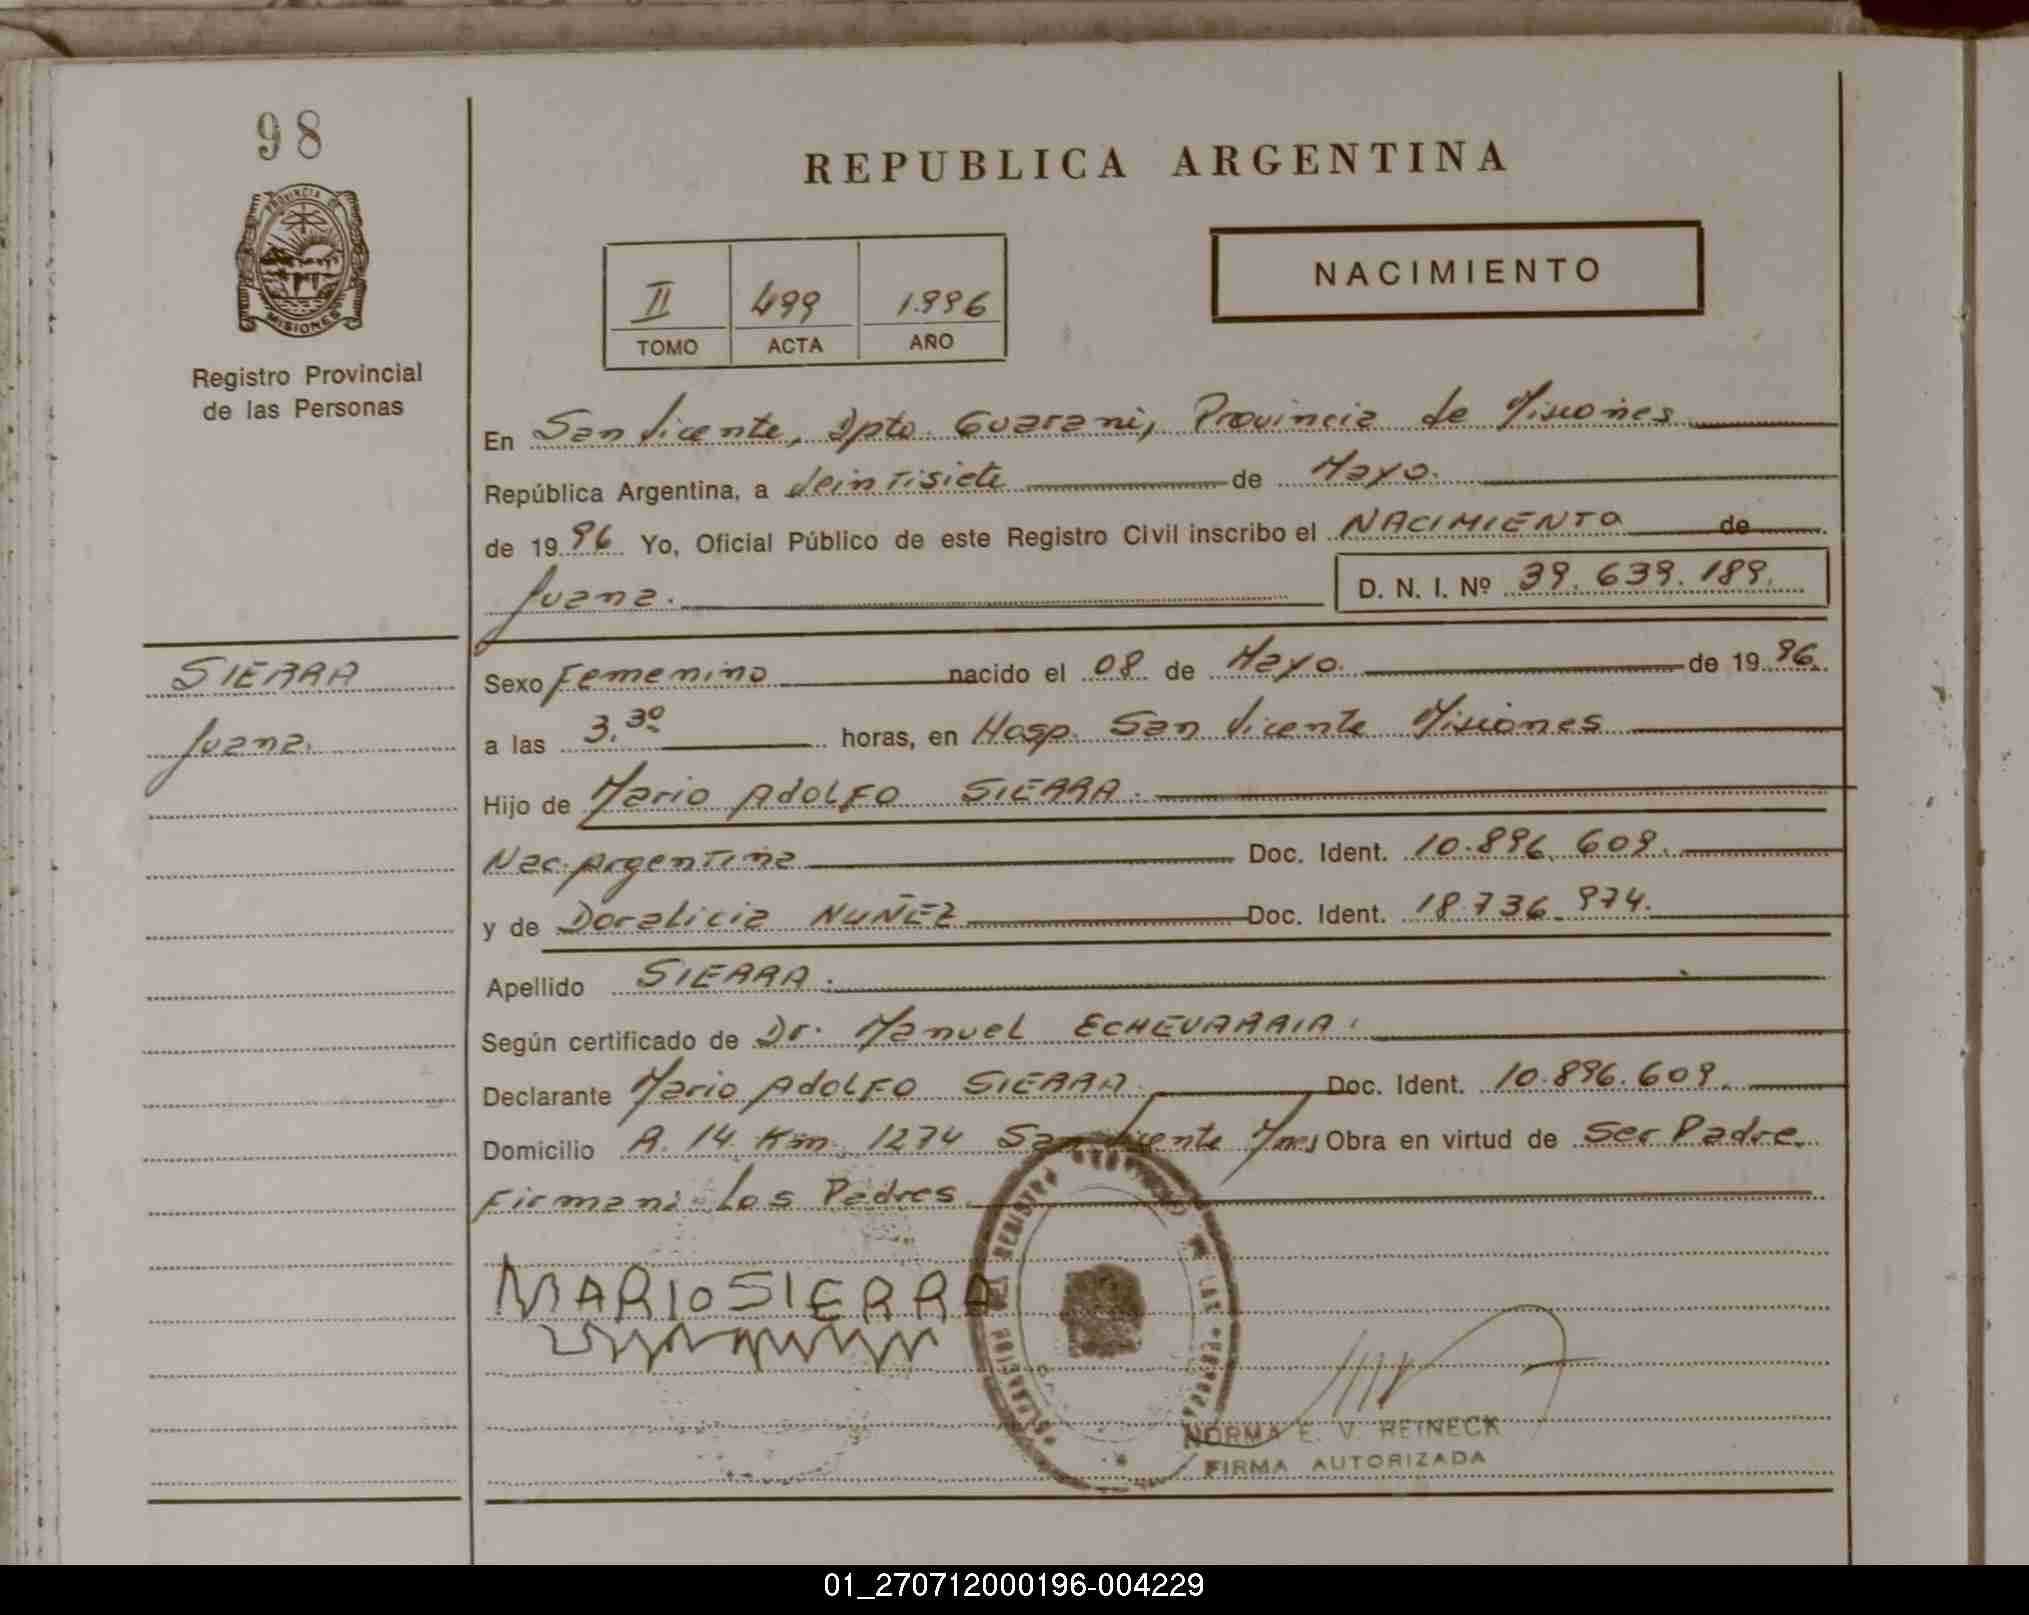 98
PROVINCIA DE
MISIONES
Registro Provincial
de las Personas
REPUBLICA ARGENTINA
NACIMIENTO
II 499 1.996
TOMO ACTA AÑO
En San Vicente, Dpto. Guarani, Provincia de Misiones
República Argentina, a Veintisiete de Mayo.
de 19 96 Yo, Oficial Público de este Registro Civil inscribo el NACIMIENTO de
Juana.
D. N. I. Nº 39.639.189.
SIERRA
Juana.
Sexo Femenino nacido el 08 de Mayo. de 19 96.
a las 3,30 horas, en Hosp. San Vicente Misiones
Hijo de Mario Adolfo SIERRA.
Nac. Argentina Doc. Ident. 10.896.609.
y de Doralicia NUÑEZ Doc. Ident. 18.736.974.
Apellido SIERRA.
Según certificado de Dr. Manuel ECHEVARRIA.
Declarante Mario Adolfo SIERRA. Doc. Ident. 10.896.609.
Domicilio R. 14 Km. 1274 San Vicente Mnes Obra en virtud de Ser Padre.
Firman: Los Padres.
MARIO SIERRA
NORMA E. V. REINECK
FIRMA AUTORIZADA
01_270712000196-004229